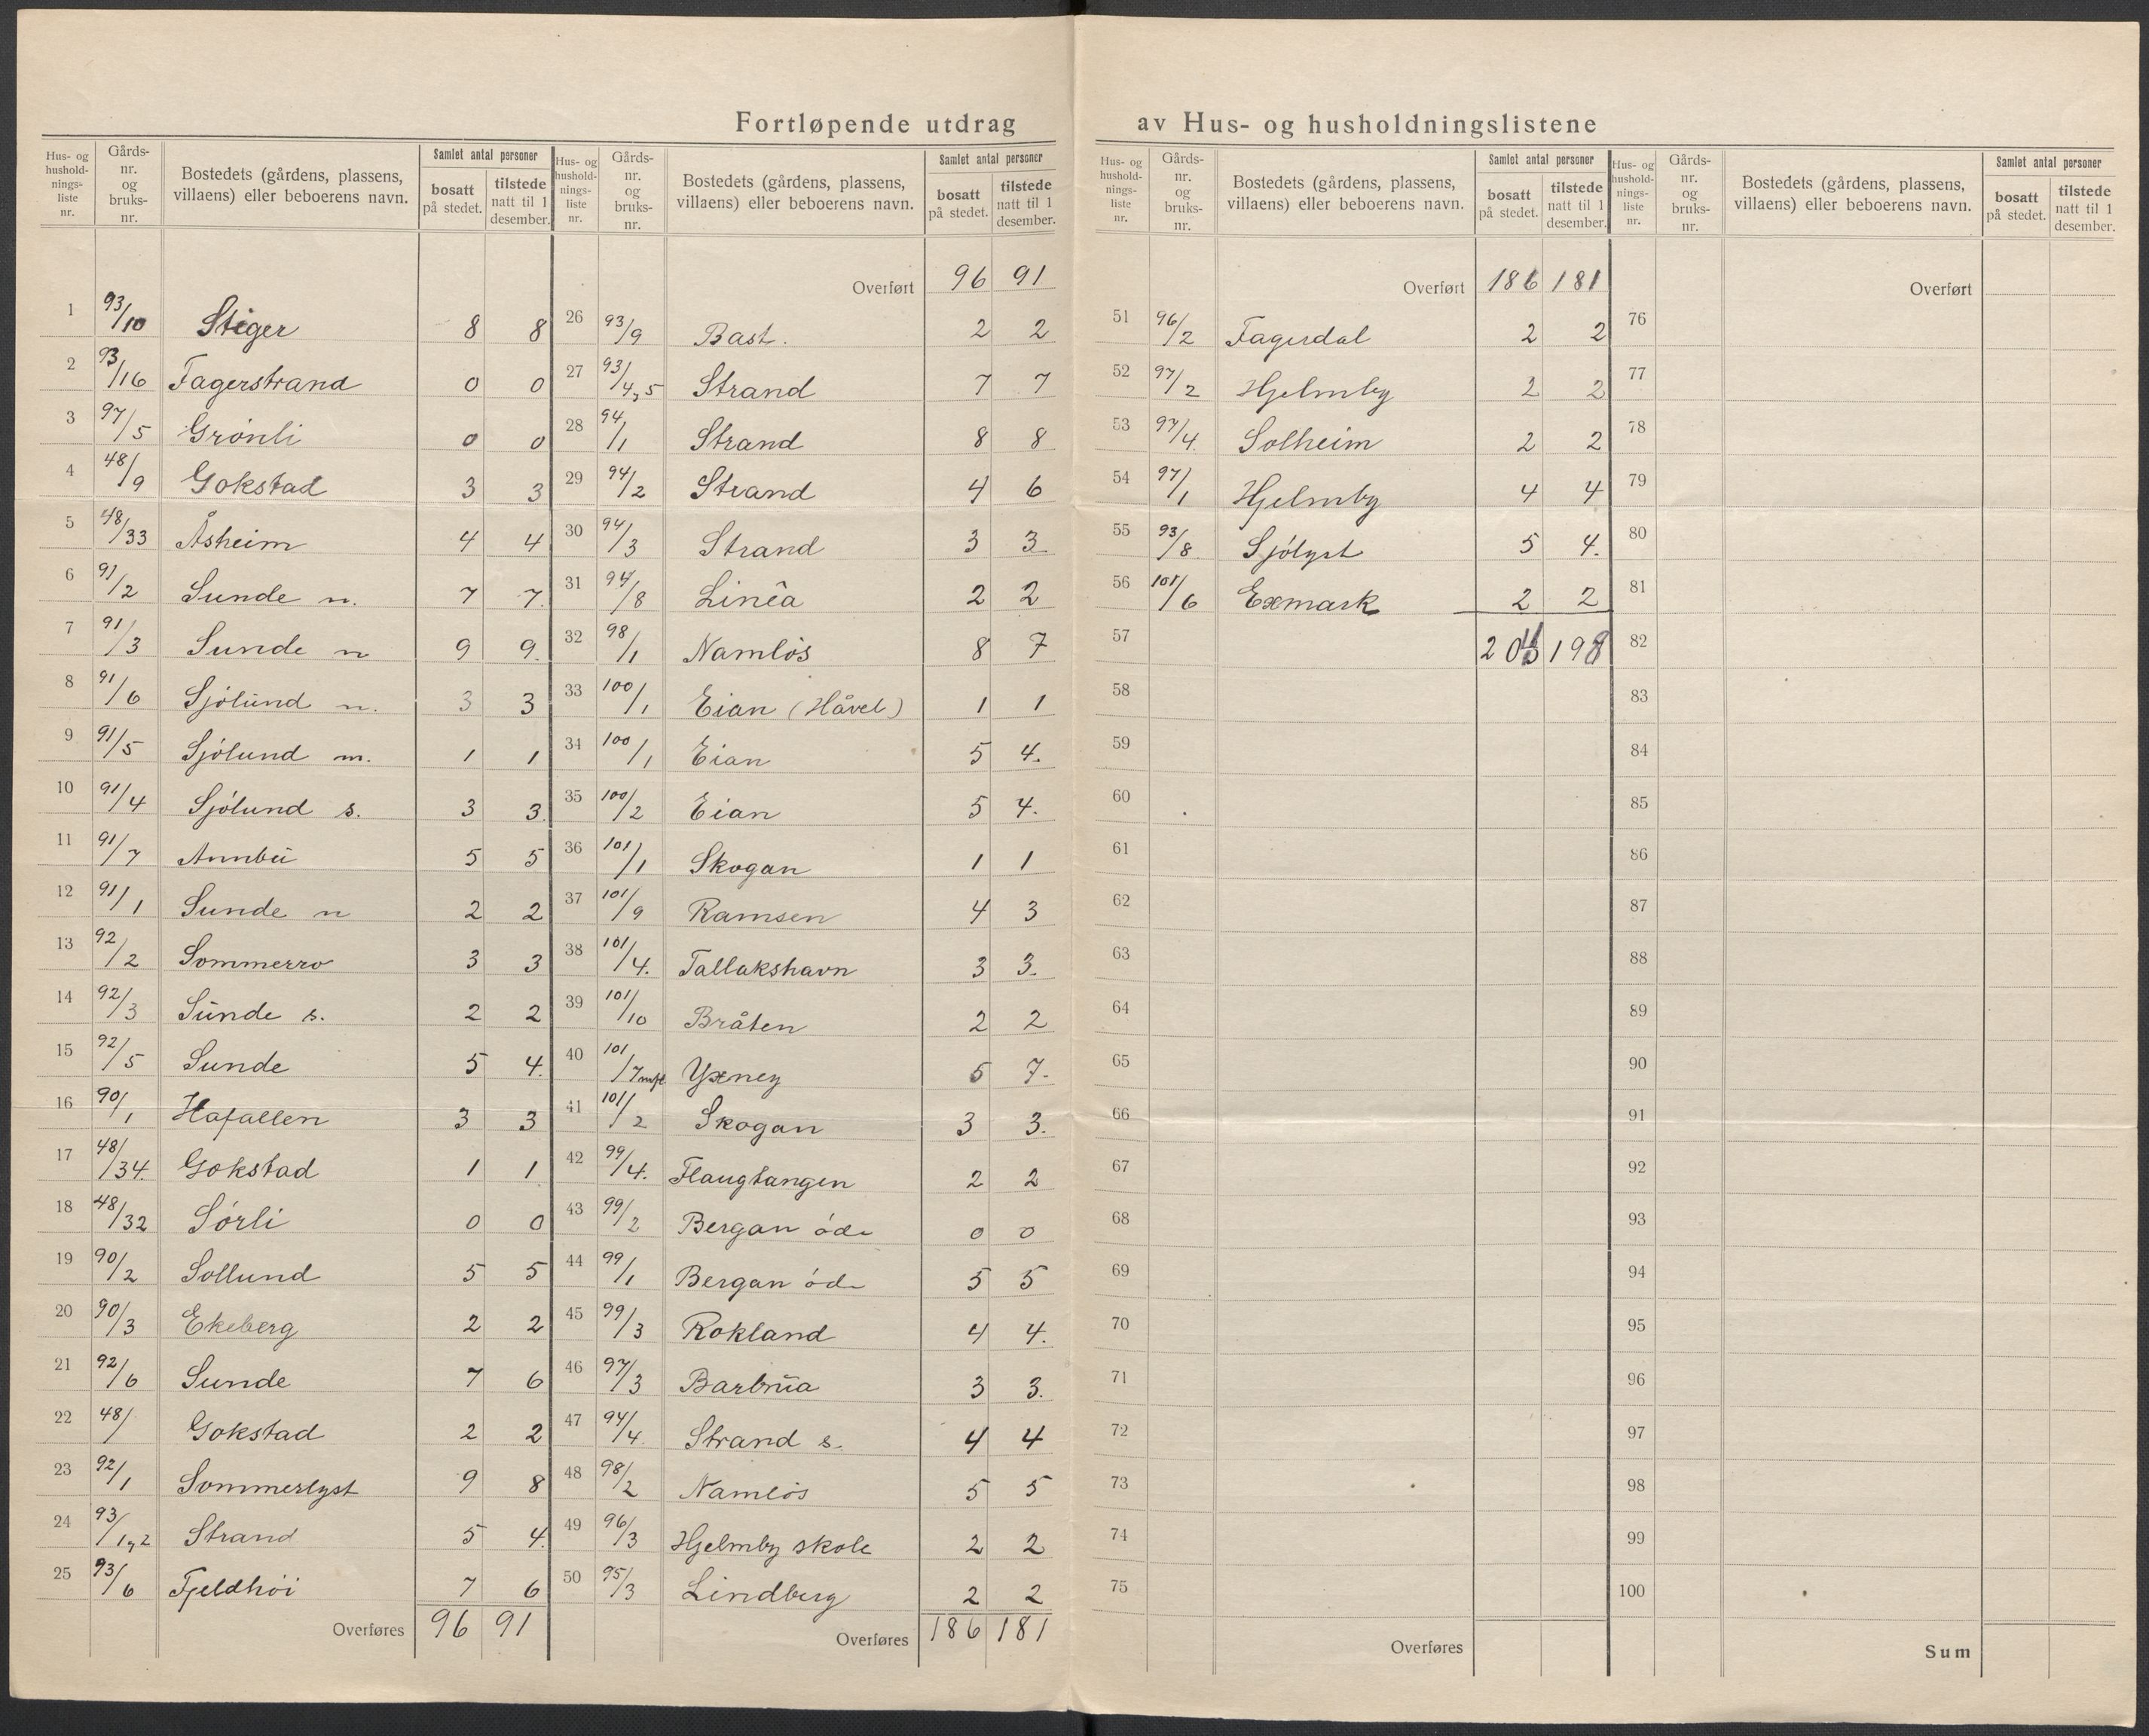 Fortløpende utdrag av Hus- og husholdningslistene
Hus- og hushold-nings-liste nr. Gårds-nr. og bruks-nr. Bostedets (gårdens, plassens, villaens) eller beboerens navn. Samlet antal personer bosatt på stedet. tilstede natt til 1 desember.
1 93/10 Stiger 8 8
2 93/16 Fagerstrand 0 0
3 97/5 Grönli 0 0
4 48/9 Gokstad 3 3
5 48/33 Åsheim 4 4
6 91/2 Sunde n. 7 7.
7 91/3 Sunde n 9 9.
8 91/6 Sjölund n. 3 3
9 91/5 Sjölund m. 1 1
10 91/4 Sjölund s. 3 3.
11 91/7 Annbu 5 5
12 91/1 Sunde n 2 2
13 92/2 Sommerro 3 3
14 92/3 Sunde s. 2 2
15 92/5 Sunde 5 4.
16 90/1 Hafallen 3 3
17 48/34. Gokstad 1 1
18 48/32 Sörli 0 0
19 90/2 Sollund 5 5
20 90/3 Ekeberg 2 2
21 92/6 Sunde 7 6
22 48/ Gokstad 2 2
23 92/1 Sommerlyst 9 8
24 93/1,2 Strand 5 4.
25 93/6 Fjeldhöi 7 6
Overføres 96 91
Hus- og hushold-nings-liste nr. Gårds-nr. og bruks-nr. Bostedets (gårdens, plassens, villaens) eller beboerens navn. Samlet antal personer bosatt på stedet. tilstede natt til 1 desember.
Overført 96 91
26 93/9 Bast. 2 2
27 93/4,5 Strand 7 7
28 94/1 Strand 8 8
29 94/2 Strand 4 6
30 94/3 Strand 3 3.
31 94/8 Linêa 2 2
32 98/1 Namlös 8 7
33 100/1 Eian (Håvel) 1 1
34 100/1 Eian 5 4.
35 100/2 Eian 5 4.
36 101/1 Skogan 1 1
37 101/9 Ramsen 4 3
38 101/4. Tallakshavn 3 3.
39 101/10 Bråten 2 2
40 101/7 mfl Yxney 6 7.
41 101/2 Skogan 3 3.
42 99/4. Flaugtangen 2 2
43 99/2 Bergan öde 0 0
44 99/1 Bergan öde 5 5
45 99/3 Rokland 4 4.
46 97/3 Barbrua 3 3.
47 94/4 Strand s. 4 4
48 98/2 Namlös 5 5
49 96/3 Hjelmby skole 2 2
50 95/3 Lindberg 2 2
Overføres 186 181
Hus- og hushold-nings-liste nr. Gårds-nr. og bruks-nr. Bostedets (gårdens, plassens, villaens) eller beboerens navn. Samlet antal personer bosatt på stedet. tilstede natt til 1 desember.
Overført 186 181
51 96/2 Fagerdal 2 2
52 97/2 Hjelmby 2 2
53 97/4. Solheim 2 2
54 97/1 Hjelmby 4 4
55 93/8 Sjölyst 5 4.
56 101/6 Exmark 2 2
57 198
58
59
60
61
62
63
64
65
66
67
68
69
70
71
72
73
74
75
Overføres
Hus- og hushold-nings-liste nr. Gårds-nr. og bruks-nr. Bostedets (gårdens, plassens, villaens) eller beboerens navn. Samlet antal personer bosatt på stedet. tilstede natt til 1 desember.
Overført
76
77
78
79
80
81
82
83
84
85
86
87
88
89
90
91
92
93
94
95
96
97
98
99
100
Sum